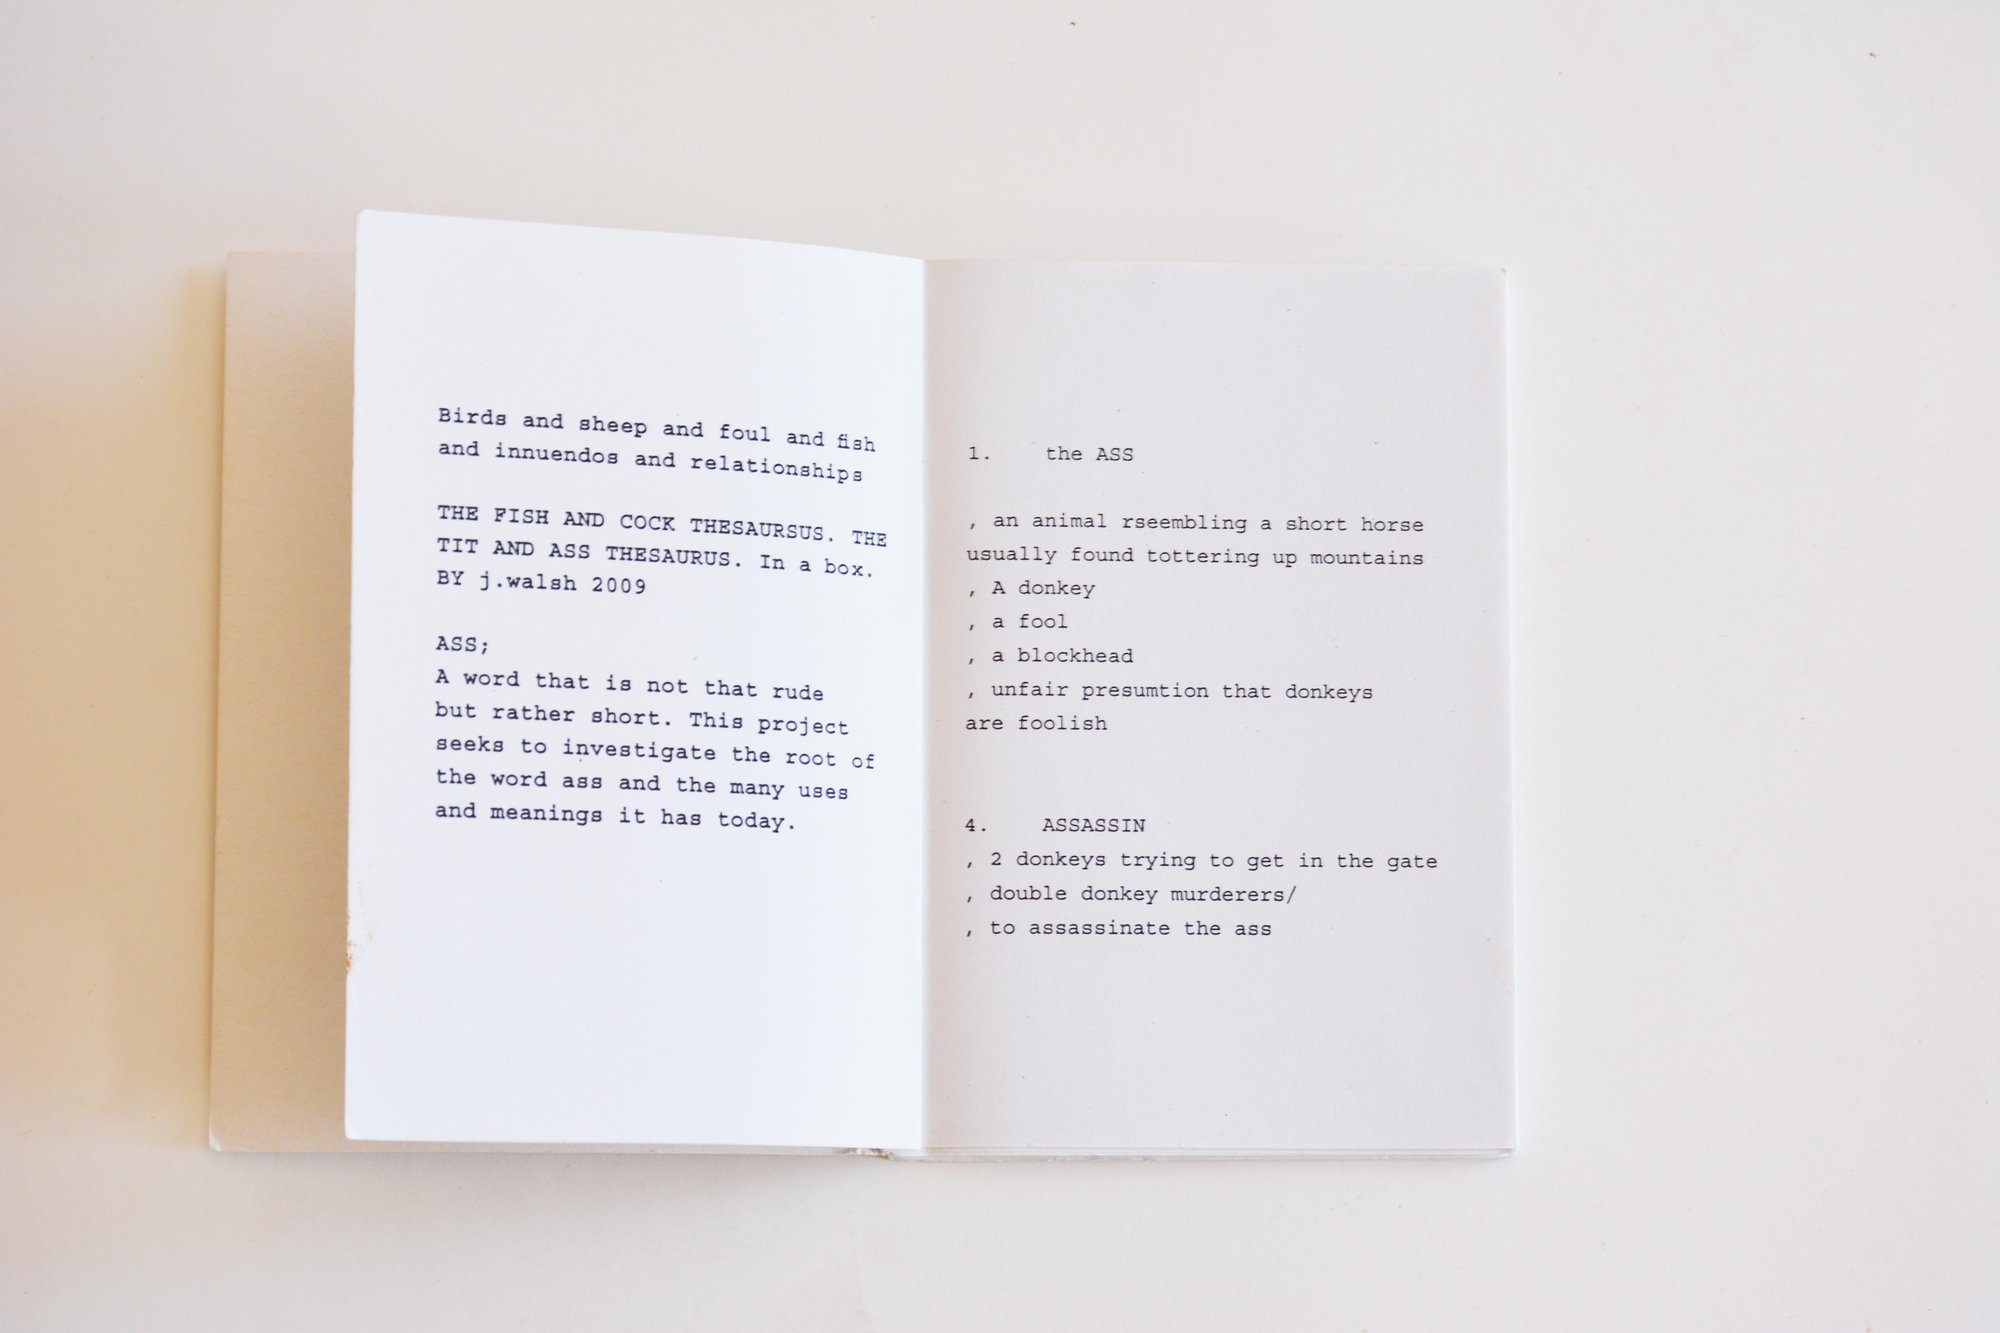 Birds and sheep and foul and fish
and innuendos and relationships
THE FISH AND COCK THESAURSUS. THE
TIT AND ASS THESAURUS. In a box.
BY j.walsh 2009
ASS;
A word that is not that rude
but rather short. This project
seeks to investigate the root of
the word ass and the many uses
and meanings it has today.
1. the ASS
, an animal rseembling a short horse
usually found tottering up mountains
, A donkey
, a fool
, a blockhead
, unfair presumtion that donkeys
are foolish
4. ASSASSIN
, 2 donkeys trying to get in the gate
, double donkey murderers/
, to assassinate the ass